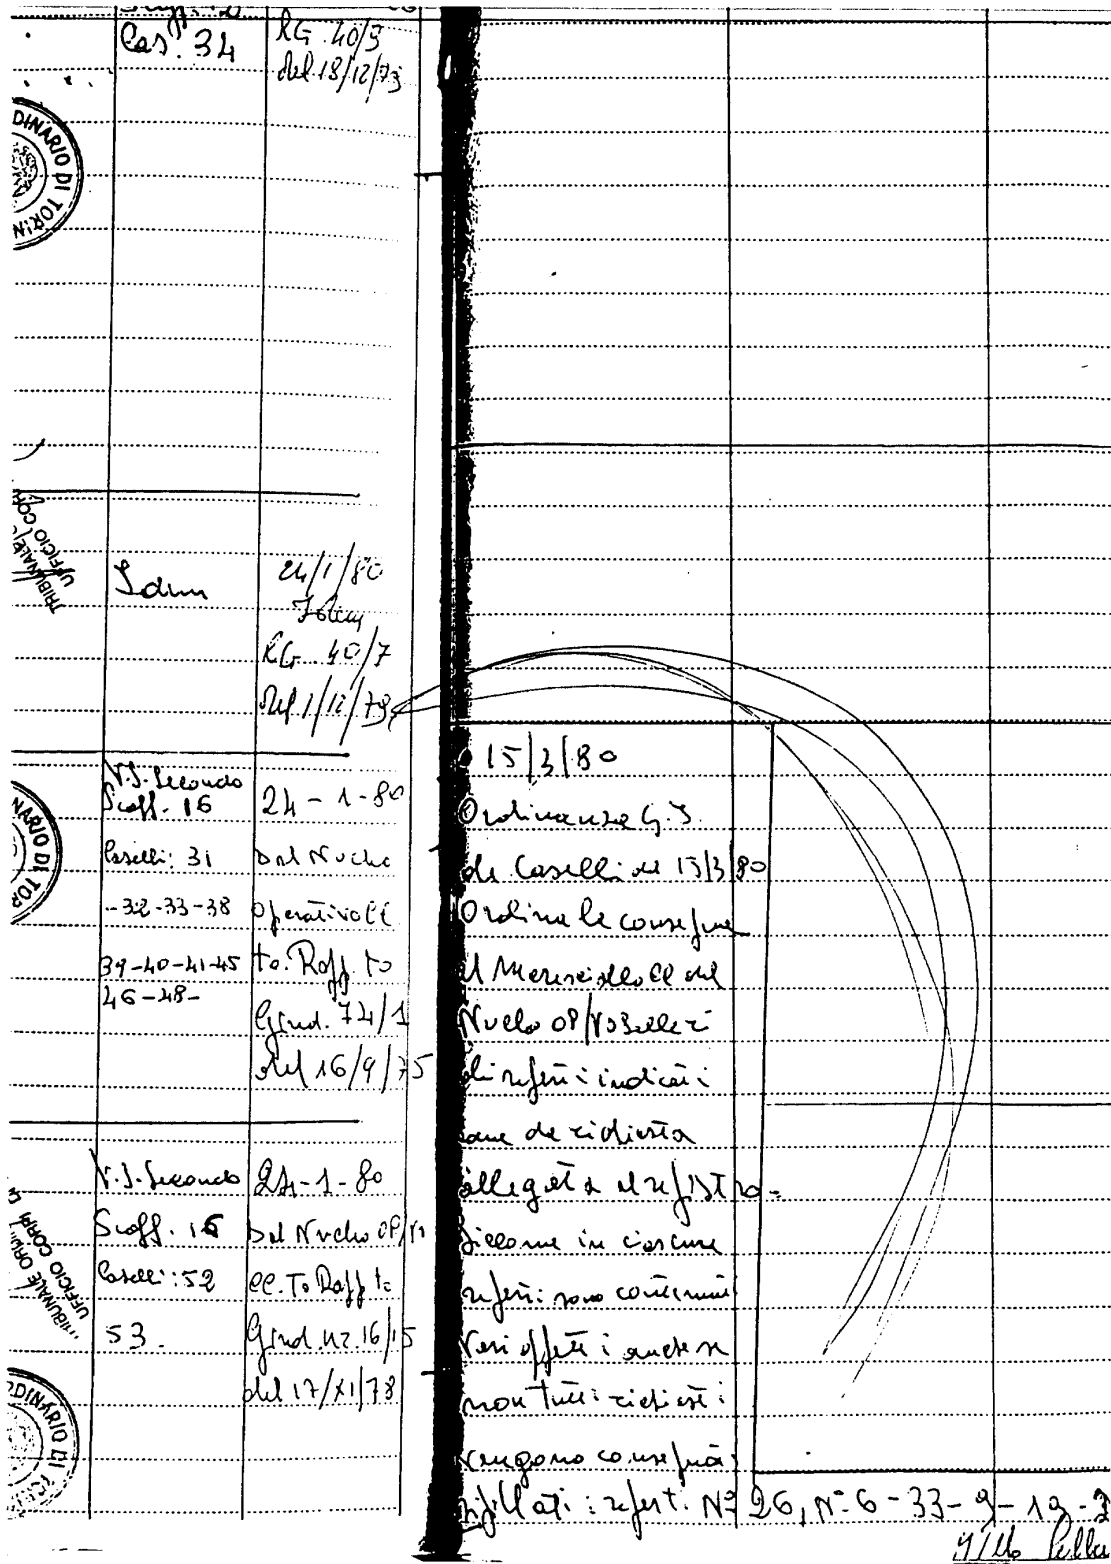 Cas. 34
RG. 40/3
del 18/12/73
DINARIO DI TORIN
TRIBUNALE
UFFICIO COR
Idem
24/1/80
RG. 40/7
del 1/12/79
V.I. Secondo
Scaff. 16
Caselli: 31
-32-33-38
39-40-41-45
46-48-
24-1-80
Dal Nucleo
Operativo CC
To. Rapp. to
Giud. 74/1
del 16/9/75
NARIO DI TOR
V.I. Secondo
Scaff. 16
Caselli: 52
53.
24-1-80
Dal Nucleo OP/vo
CC. To Rapp to
Giud. nr. 16/15
del 17/XI/78
TRIBUNALE ORDIN
UFFICIO CORPI
RDINARIO DI
15/3/80
Ordinanza G.I.
dr Caselli del 15/3/80
Ordina la consegna
al Maresciallo CC del
Nucleo OP/vo
di referti indicati
come da richiesta
allegata al registro-
Siccome in ciascun
referti sono contenuti
vari oggetti anche se
non tutti richiesti
vengono consegnati
sigillati: refert. N° 26, N° 6-33-9-19-3